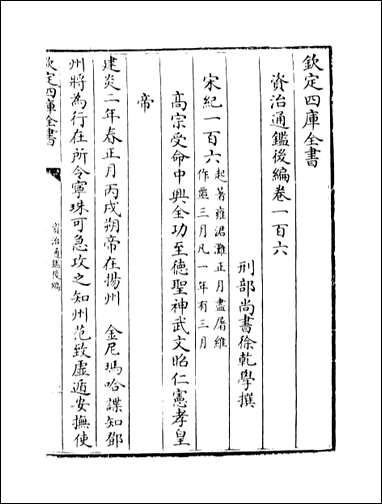 欽定四庫全書
資治通鑑後編卷一百六
刑部尚書徐乾學撰
宋紀一百六
起著雍涒灘正月盡屠維
作噩三月凡一年有三月
高宗受命中興全功至德聖神武文昭仁憲孝皇
帝
建炎二年春正月丙戌朔帝在揚州　金尼瑪哈諜知鄧
州將為行在所令寧珠可急攻之知州范致虛遁安撫使
欽定四庫全書
資治通鑑後編